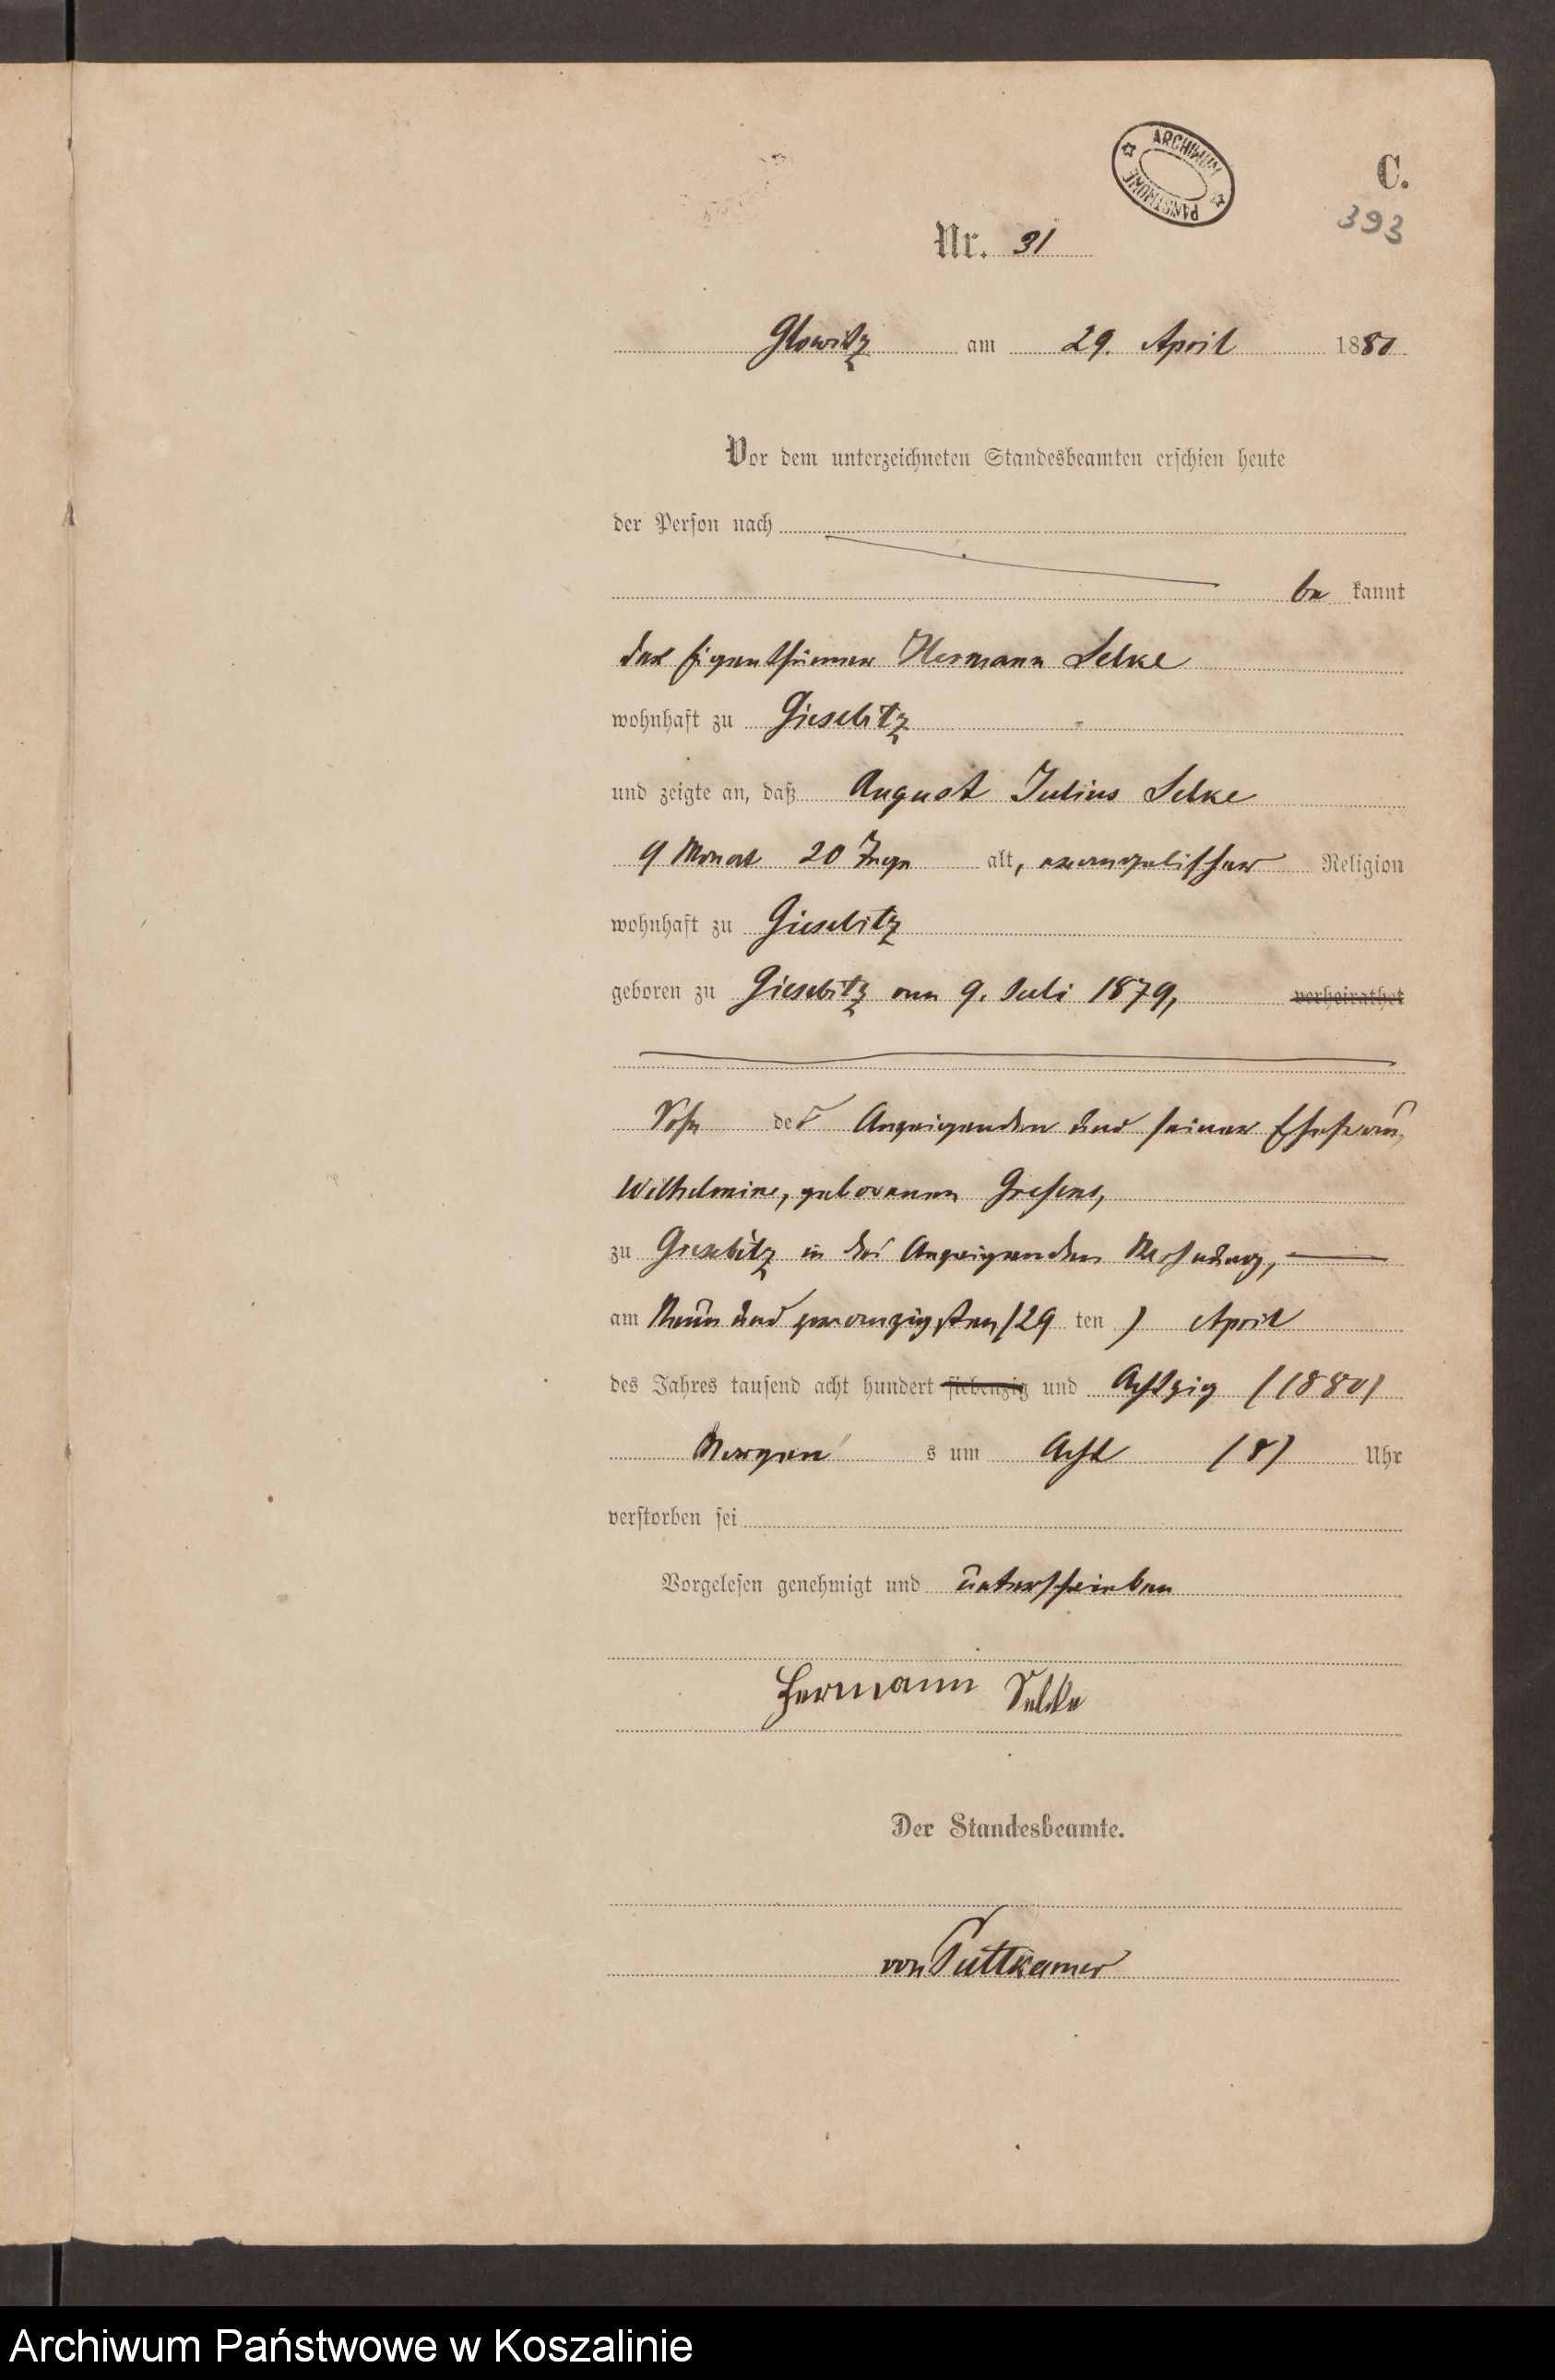 ARCHIWUM PAŃSTWOWE
C.
393
Nr. 31
Glowitz am 29. April 1880
Vor dem unterzeichneten Standesbeamten erschien heute
der Person nach
be kannt
der Eigenthümer Hermann Selke
wohnhaft zu Giesebitz
und zeigte an, daß August Julius Selke
9 Monat 20 Tage alt, evangelischer Religion
wohnhaft zu Giesebitz
geboren zu Giesebitz am 9. Juli 1879, verheirathet
Sohn des Anzeigenden und seiner Ehefrau,
Wilhelmine, geborenen Gresens,
zu Giesebitz in des Anzeigenden Wohnung,
am Neun und zwanzigsten (29 ten) April
des Jahres tausend acht hundert siebenzig und Achtzig (1880)
Morgens um Acht (8) Uhr
verstorben sei
Vorgelesen genehmigt und unterschrieben
Hermann Selke
Der Standesbeamte.
von Puttkamer
Archiwum Państwowe w Koszalinie